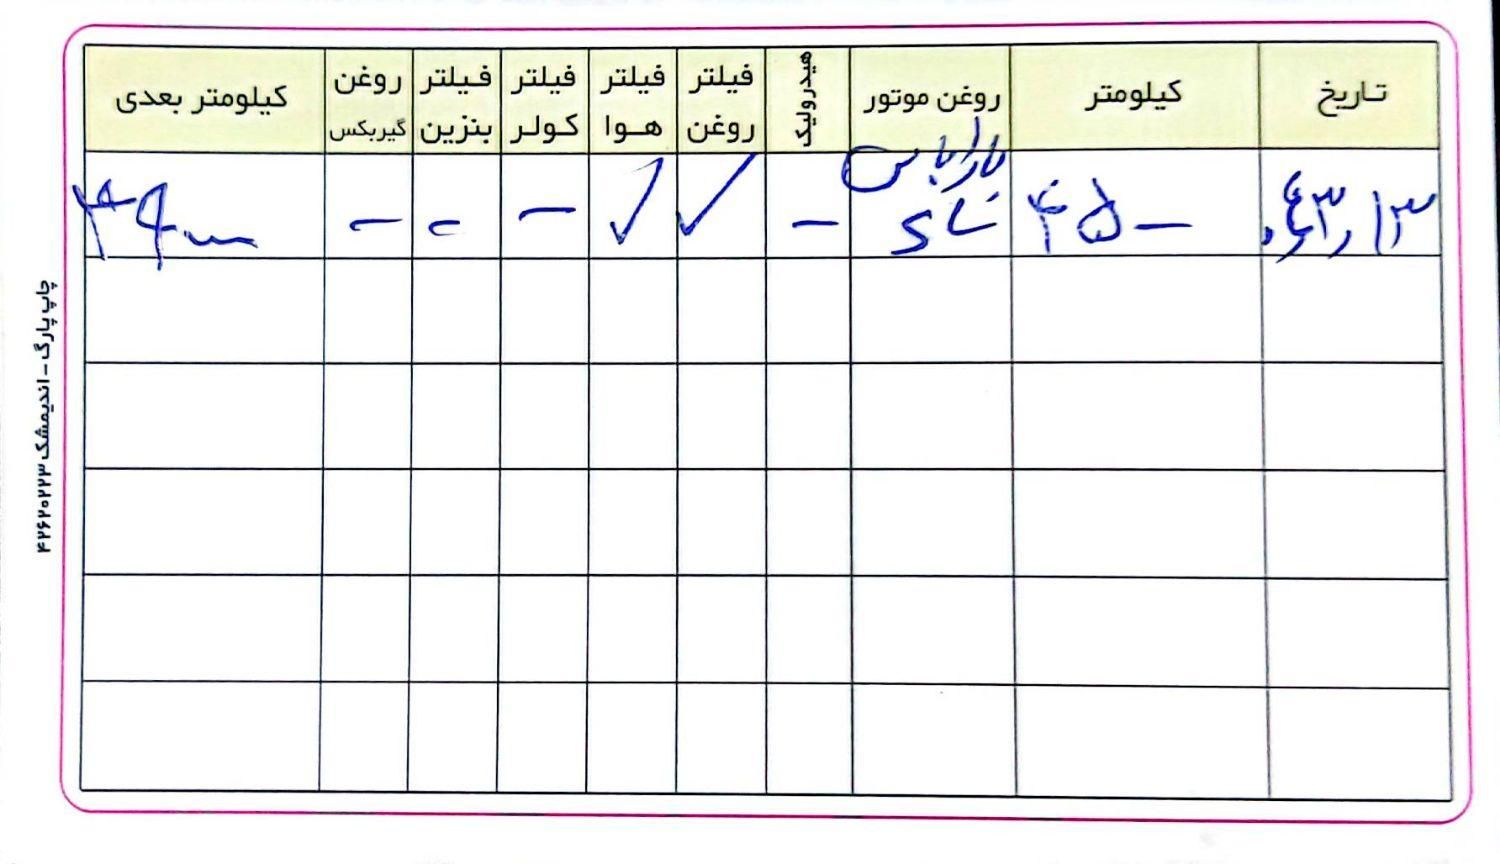 تاریخ کیلومتر روغن موتور هیدرولیک فیلتر روغن فیلتر هوا فیلتر کولر فیلتر بنزین روغن گیربکس کیلومتر بعدی
پارا پاس
۴۵ - - ✓ ✓ - - -
چاپ پارگ - اندیمشک ۴۲۶۲۰۲۲۳